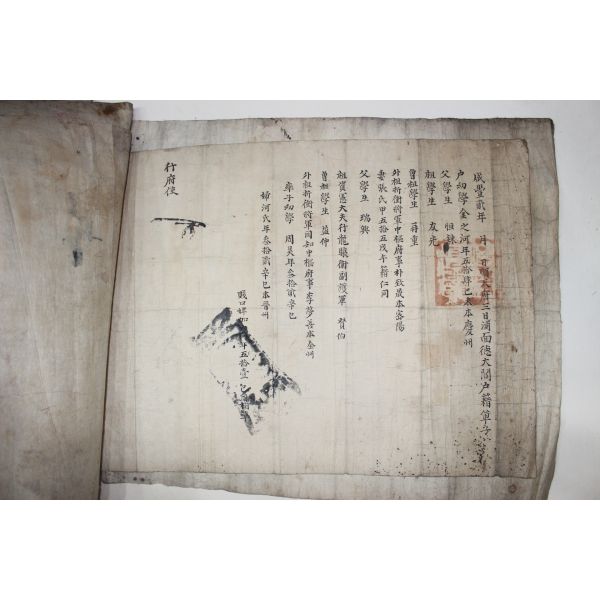 咸豐貳年 月 日順天府二日浦面德大閭戶籍單子
戶幼學金之河年五拾肆己未本慶州
父學生 恒
祖學生 友光
曾祖學生 再重
外祖折衝將軍中樞府事朴致晟本密陽
妻張氏甲五拾五戊午籍仁同
父學生 瑞興
祖資憲大夫行龍驤衛副護軍 賛伯
曾祖學生 益仲
外祖折衝將軍同知中樞府事李夢善本全州
率子幼學 周昊年叁拾貳辛巳
婦河氏年叁拾貳辛巳本晉州
賤口婢 年五拾壹
行府使